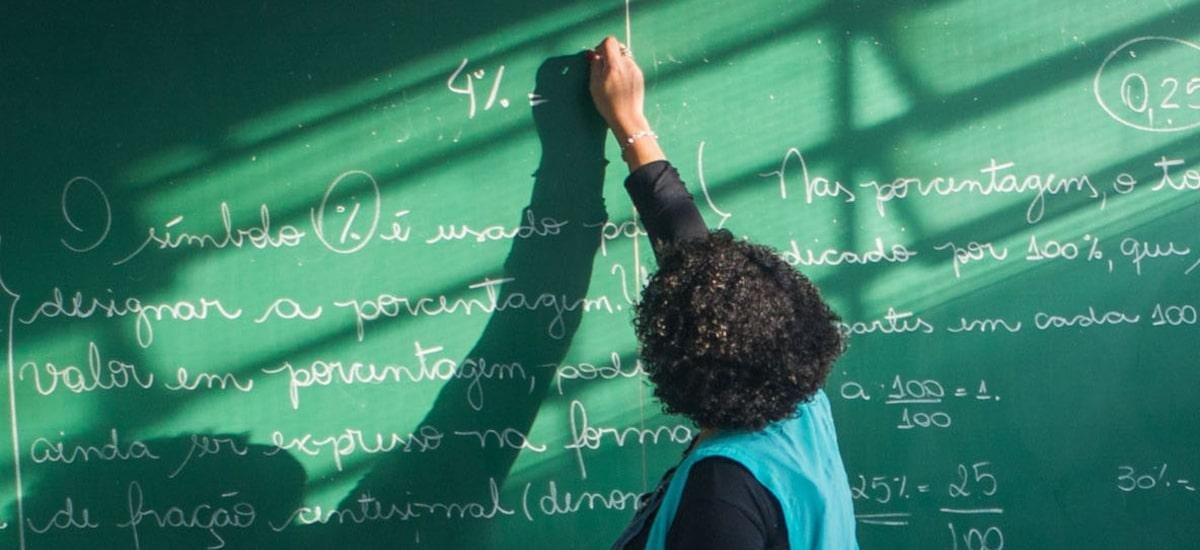 4% =
O símbolo % é usado pa
designar a porcentagem.
valor em porcentagem, pode
ainda ser expresso na forma
de fração centesimal (denom
0,25
Nas porcentagens, o to
dicado por 100%, que
partes em cada 100
a 100/100 = 1.
25% = 25/100
30% =